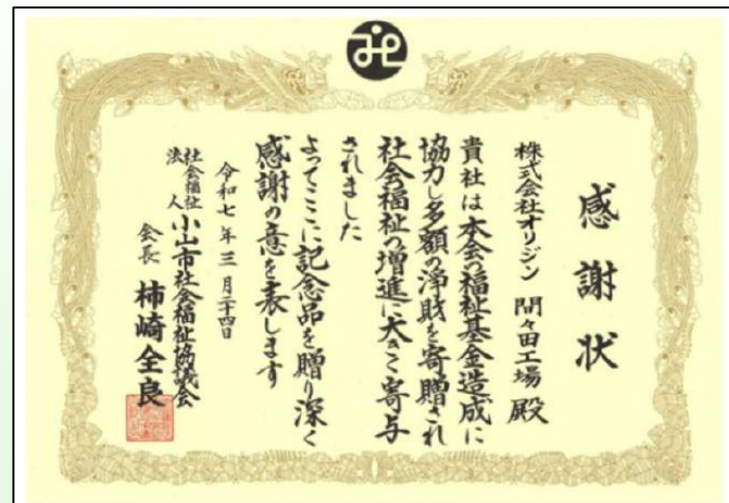 感謝状
株式会社オリジン 間々田工場 殿
貴社は本会の福祉基金造成に
協力し多額の浄財を寄贈され
社会福祉の増進に大きく寄与
されました
よってここに記念品を贈り深く
感謝の意を表します
令和七年三月二十四日
社会福祉法人 小山市社会福祉協議会
会長 柿崎全良